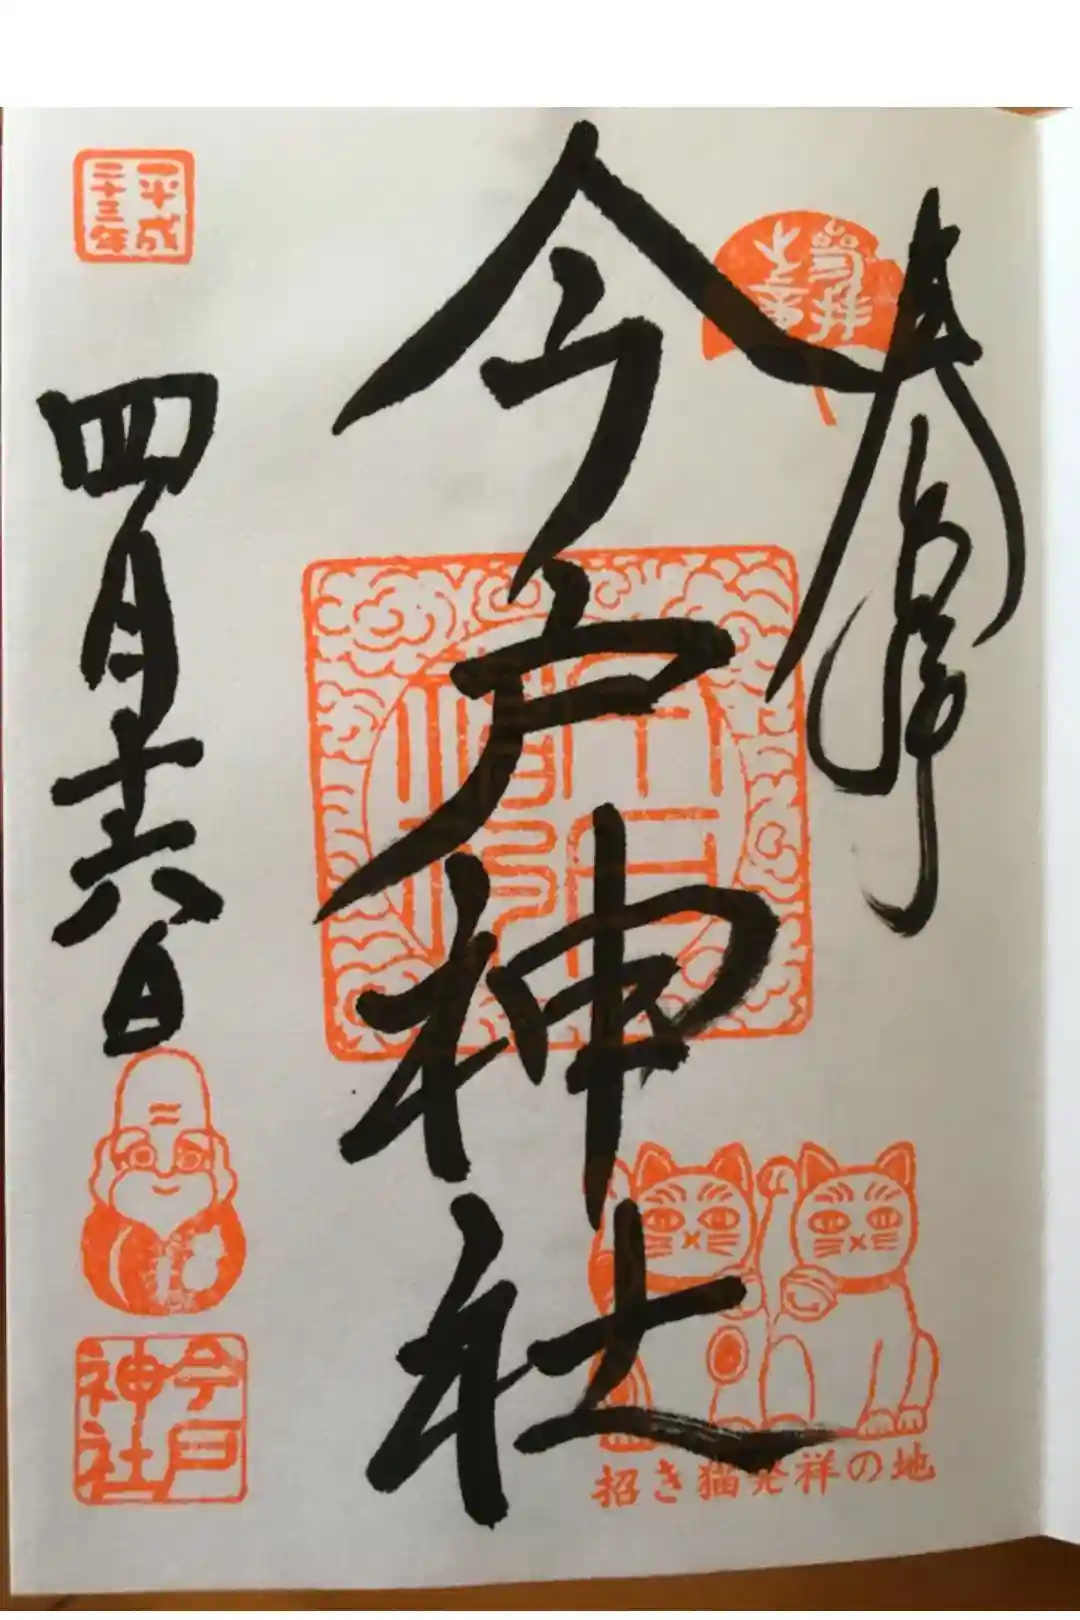 奉拝
今戸神社
平成
二十三年
四月十六日
今戸
神社
招き猫発祥の地